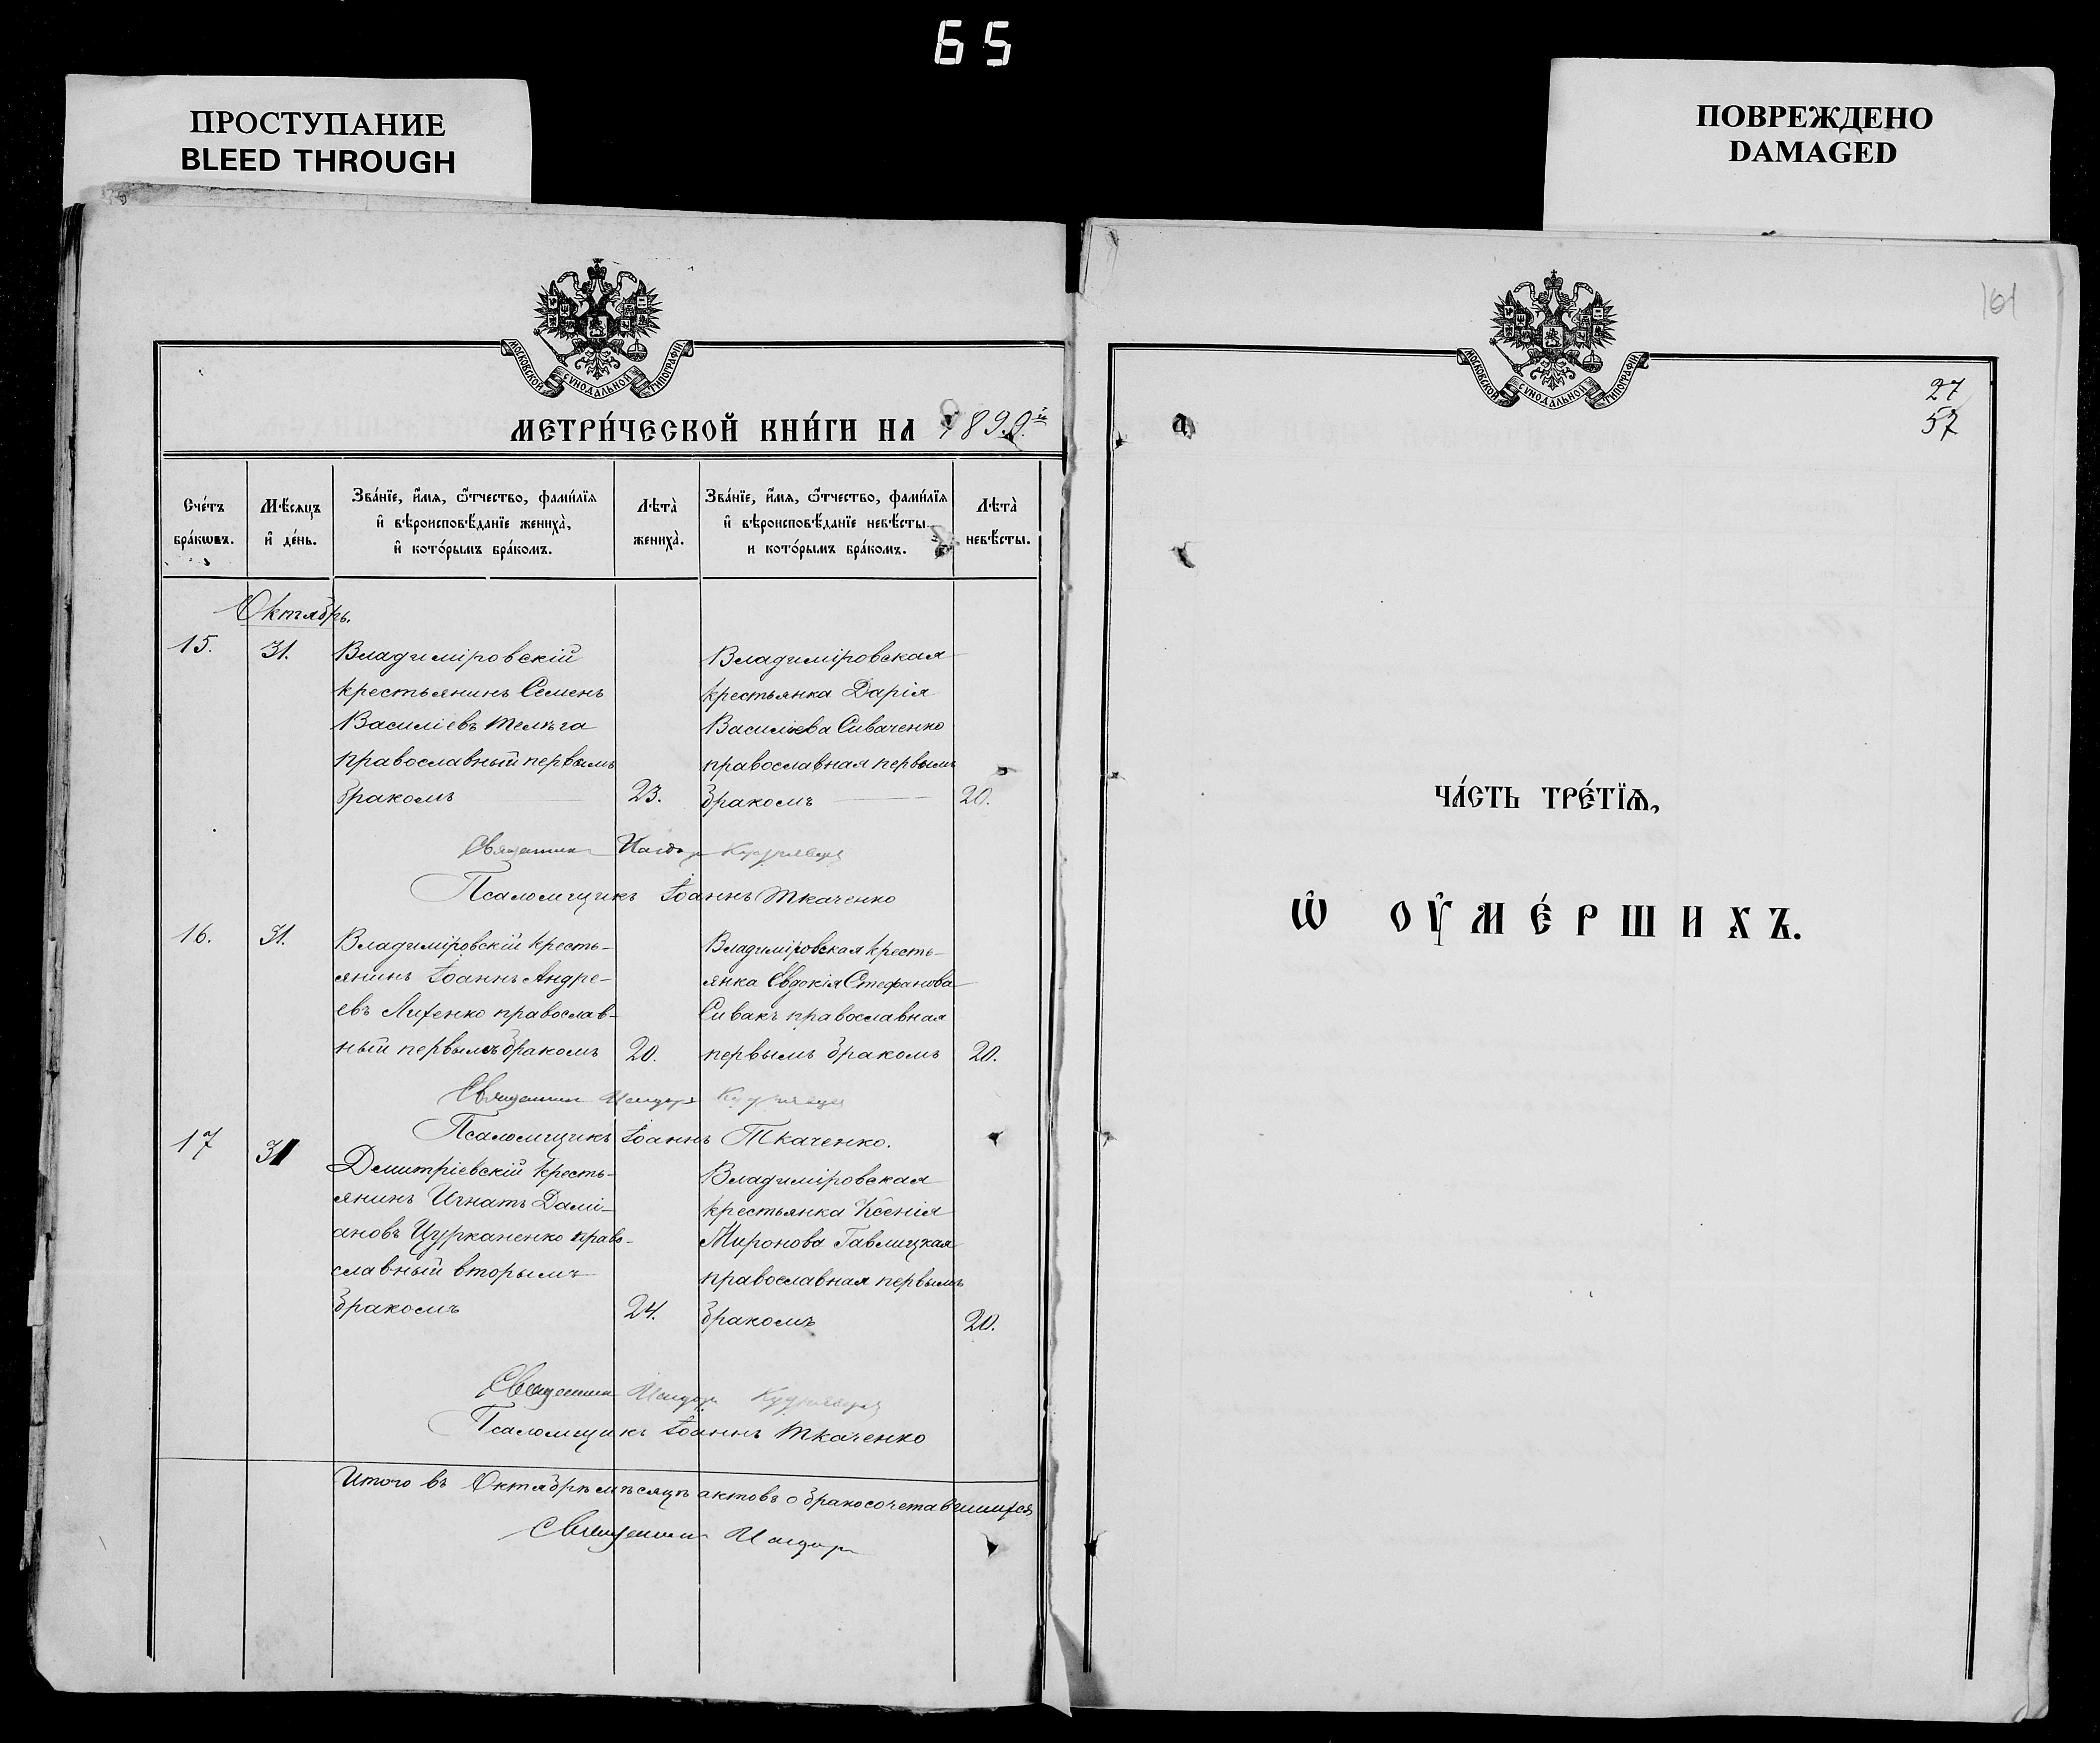 65
ПРОСТУПАНИЕ
BLEED THROUGH
ПОВРЕЖДЕНО
DAMAGED
МОСКОВСКОЙ СѴНОДАЛЬНОЙ ТИПОГРАФІИ
МЕТРИ́ЧЕСКОЙ КНИ́ГИ НА 1899
Сче́тъ бра́кѡвъ.
Мѣ́сяцъ и҆ де́нь.
Зва́нїе, и҆́мѧ, ѻ҆́тчество, фами́лїѧ
и҆ вѣроисповѣ́данїе женихà,
и҆ кото́рымъ бра́комъ.
Лѣтà женихà.
Зва́нїе, и҆́мѧ, ѻ҆́тчество, фами́лїѧ
и҆ вѣроисповѣ́данїе невѣ́сты
и кото́рымъ бра́комъ.
Лѣтà невѣ́сты.
Октябрь.
15. 31.
Владиміровскій
крестьянинъ Семенъ
Василіевъ Телѣга
православный первымъ
бракомъ 23.
Владиміровская
крестьянка Дарія
Василіева Сиваченко
православная первымъ
бракомъ 20.
Священник Исидор Кудрявцев
Псаломщикъ Іоаннъ Ткаченко
16. 31.
Владиміровскій кресть-
янинъ Іоаннъ Андре-
евъ Лихенко православ-
ный первымъ бракомъ 20.
Владиміровская кресть-
янка Евдокія Стефанова
Сивакъ православная
первымъ бракомъ 20.
Священник Исидор Кудрявцев
Псаломщикъ Іоаннъ Ткаченко.
17 31
Димитріевскій кресть-
янинъ Игнатъ Дамі-
ановъ Цурканенко право-
славный вторымъ
бракомъ 24.
Владиміровская
крестьянка Ксенія
Миронова Гавлицкая
православная первымъ
бракомъ 20.
Священник Исидор Кудрявцев
Псаломщикъ Іоаннъ Ткаченко
Итого въ Октябрѣ мѣсяцѣ актовъ о бракосочетавшихся
Священник Исидор
161
МОСКОВСКОЙ СѴНОДАЛЬНОЙ ТИПОГРАФІИ
27
57
ЧА́СТЬ ТРЕ́ТЇѦ,
Ѡ҆ ОУ҆МЕ́РШИХЪ.